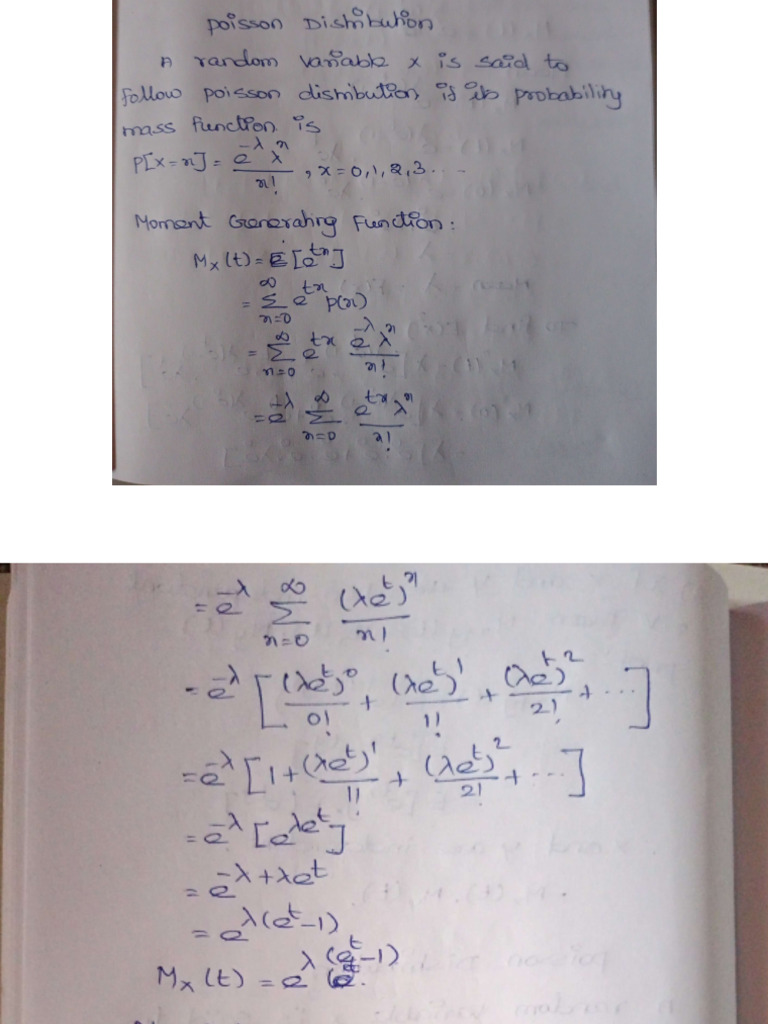 Poisson Distribution
A random variable x is said to
follow poisson distribution, if its probability
mass function is
P[X=x] = e^-λ λ^x / x! , x = 0,1,2,3 ....
Moment Generating Function:
M_X(t) = E[e^tx]
= Σ_{x=0}^∞ e^tx p(x)
= Σ_{x=0}^∞ e^tx e^-λ λ^x / x!
= e^-λ Σ_{x=0}^∞ e^tx λ^x / x!
= e^-λ Σ_{x=0}^∞ (λe^t)^x / x!
= e^-λ [ (λe^t)^0 / 0! + (λe^t)^1 / 1! + (λe^t)^2 / 2! + ... ]
= e^-λ [ 1 + (λe^t)^1 / 1! + (λe^t)^2 / 2! + ... ]
= e^-λ [e^λe^t]
= e^-λ+λe^t
= e^λ(e^t-1)
M_X(t) = e^λ(e^t-1).